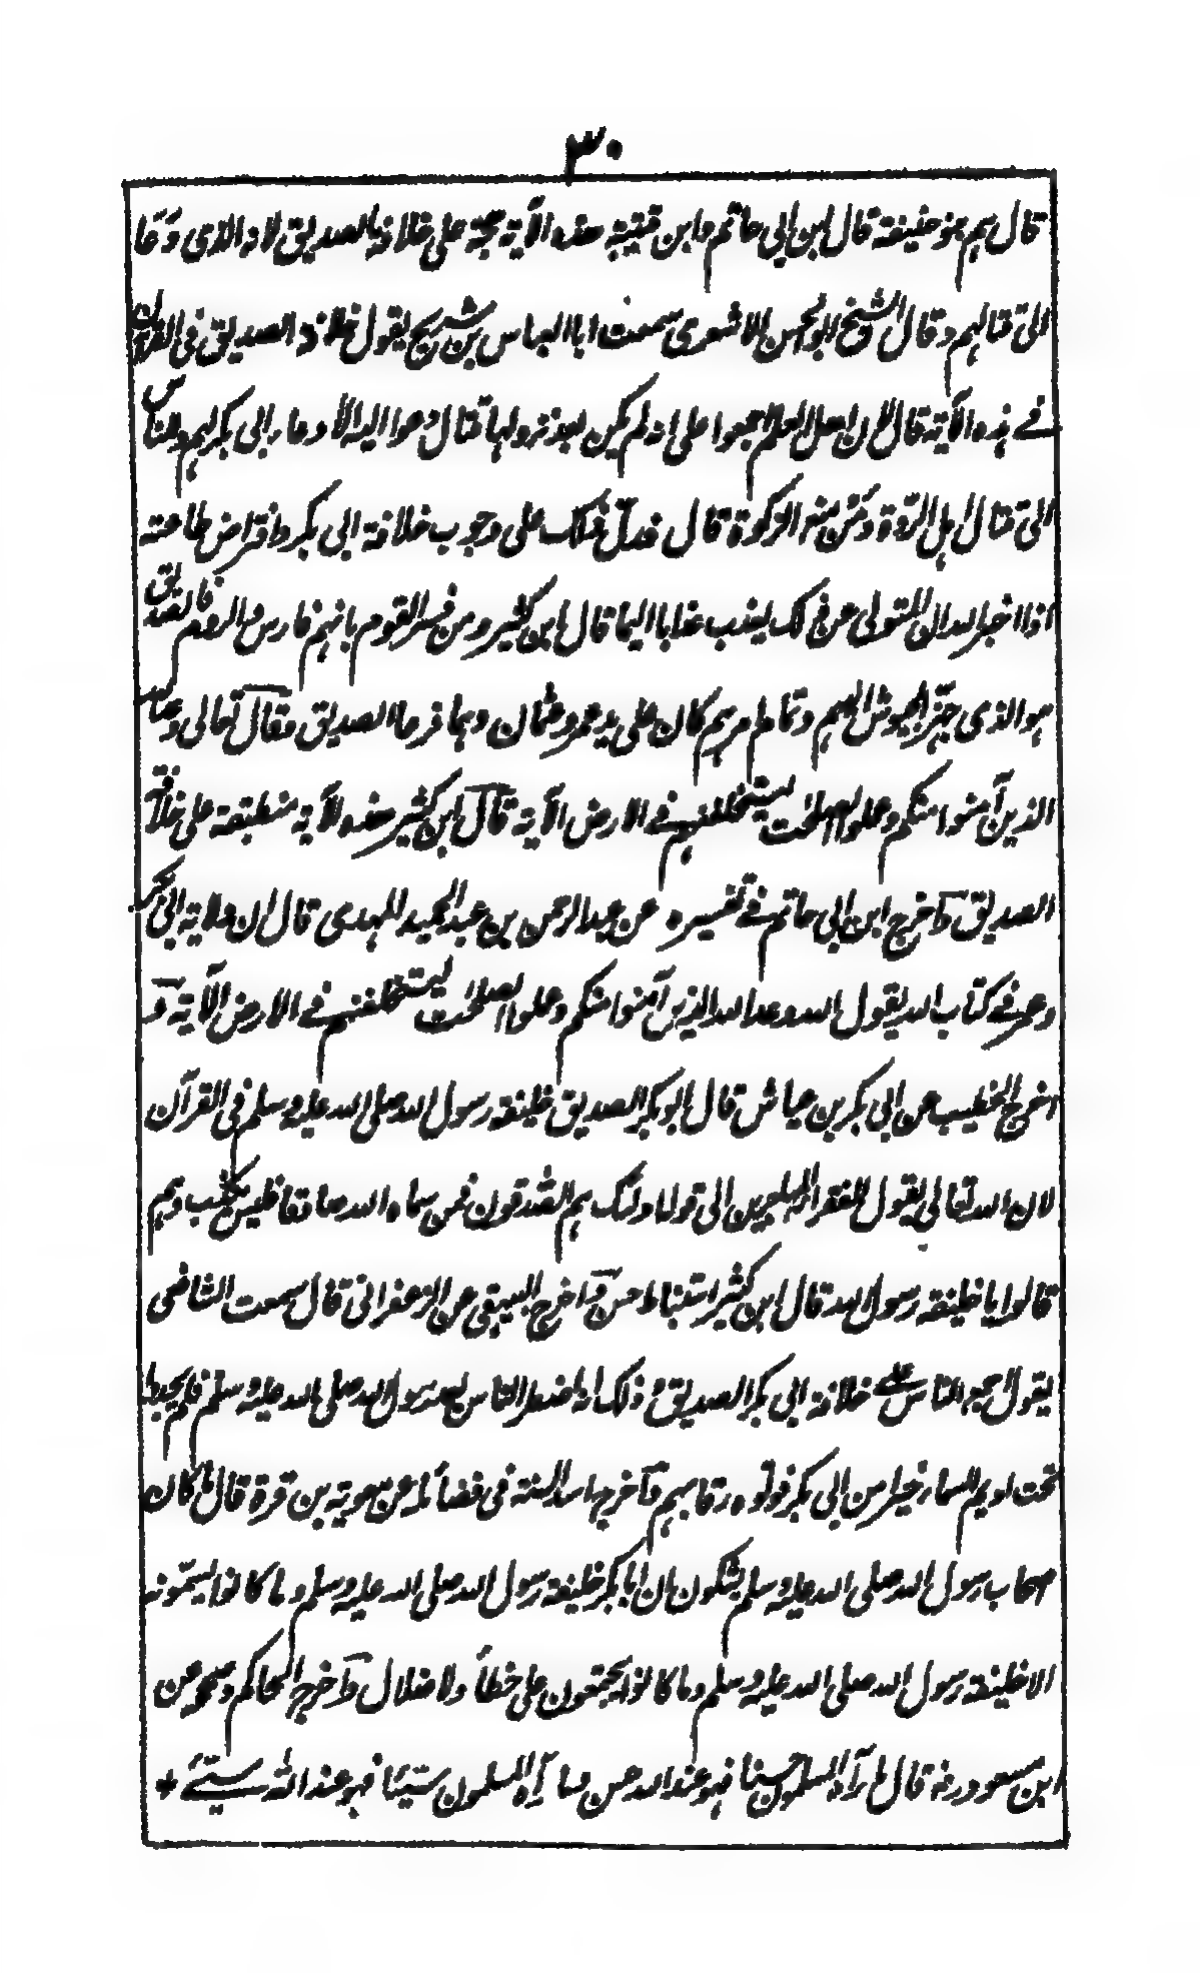 ٣٠
قال هم بنو حنيفة قال ابن ابي حاتم وابن قتيبة هذه الآية حجة على خلافة الصديق لانه الذى دعا
الى قتالهم وقال الشيخ ابو الحسن الاشعرى سمعت ابا العباس بن شريح يقول خلافة الصديق في القرآن
في هذه الآية قال لان اهل العلم اجمعوا على انه لم يكن بعد نزولها قتال دعوا اليه الا دعاء ابي بكر لهم وللناس
الى قتال اهل الردة ومن منع الزكوة قال فدل ذلك على وجوب خلافة ابي بكر وافتراض طاعته
اذا اخبر الله ان المتولى عن ذلك يعذب عذابا اليما قال ابن كثير ومن فسر القوم بانهم فارس والروم فالصديق
هو الذى جهز الجيوش اليهم وتمام امرهم كان على يد عمر وعثمان وهما فرعا الصديق وقال تعالى وعد الله
الذين آمنوا منكم وعملوا الصلحت ليستخلفنهم في الارض الآية قال ابن كثير هذه الآية منطبقة على خلافة
الصديق واخرج ابن ابي حاتم في تفسيره عن عبد الرحمن بن عبد الحميد المهدى قال ان ولاية ابي بكر
وعمر في كتاب الله يقول الله وعد الله الذين آمنوا منكم وعملوا الصلحت ليستخلفنهم في الارض الآية و
اخرج الخطيب عن ابي بكر بن عياش قال ابو بكر الصديق خليفة رسول الله صلى الله عليه وسلم في القرآن
لان الله تعالى يقول للفقراء المهاجرين الى قوله اولئك هم الصدقون فمن سماه الله صادقا فليس يكذب وهم
قالوا يا خليفة رسول الله قال ابن كثير استنباط حسن واخرج البيهقى عن الزعفرانى قال سمعت الشافعى
يقول اجمع الناس على خلافة ابي بكر الصديق وذلك انه اضطر الناس بعد رسول الله صلى الله عليه وسلم فلم يجدوا
تحت اديم السماء خيرا من ابي بكر فولوه رقابهم واخرج اسد السنة في فضائله عن معوية بن قرة قال ما كان
اصحاب رسول الله صلى الله عليه وسلم يشكون ان ابا بكر خليفة رسول الله صلى الله عليه وسلم وما كانوا يسمونه
الا خليفة رسول الله صلى الله عليه وسلم وما كانوا يجتمعون على خطأ ولا ضلال واخرج الحاكم وصححه عن
ابن مسعود رضـ قال ما رآه المسلمون حسنا فهو عند الله حسن وما رآه المسلمون سيئا فهو عند الله سيئ +